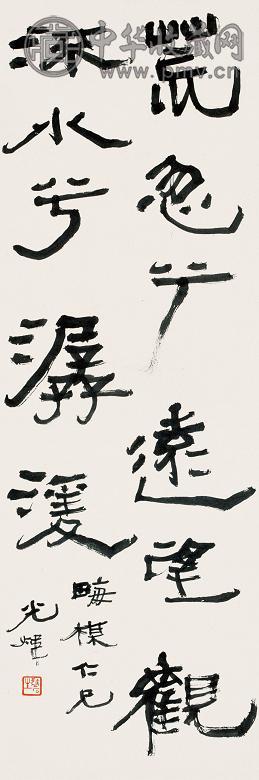 中华收藏网
www.pmv.cn
荒忽兮遠望觀
流水兮潺湲
晦楳仁兄
光煒